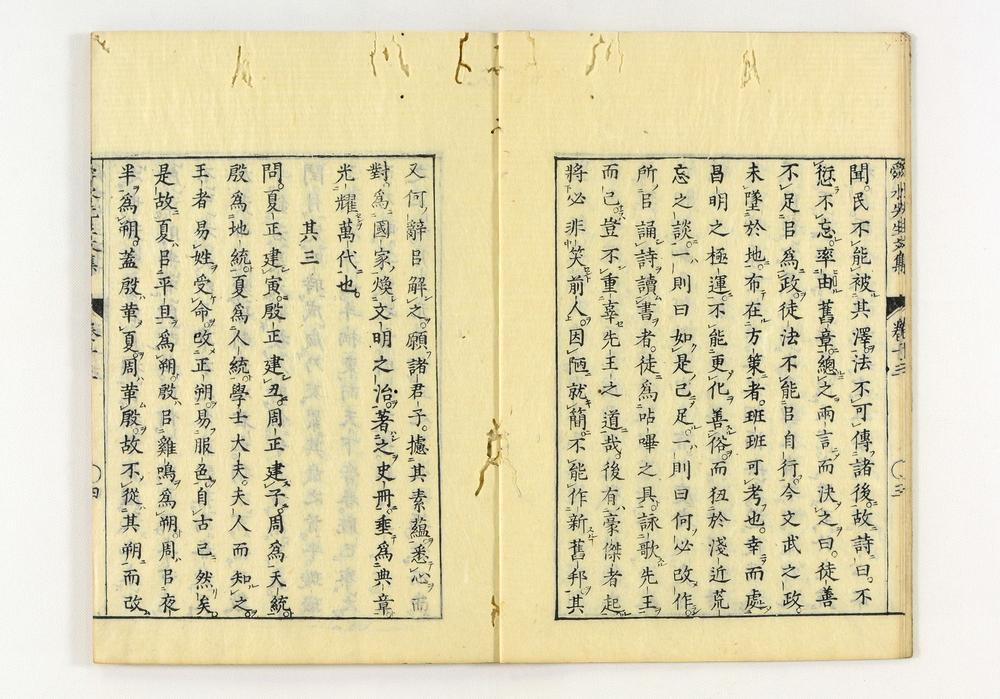 聞民不能被其澤法不可傳諸後故詩曰不
愆不忘率由舊章總之兩言而決之曰徒善
不足㠯為政徒法不能㠯自行今文武之政
未墜於地布在方策者班班可考也幸而處
昌明之極運不能更化善俗而狃於淺近荒
忘之談一則曰如是已足二則曰何必改作
所㠯誦詩讀書者徒為呫嗶之具詠歌先王
而已豈不重辜先王之道哉後有豪傑者起
將必非笑前人因陋就簡不能作新舊邦其
又何辭㠯解之願諸君子攄其素蘊悉心而
對為國家煥文明之治著之史冊垂為典章
光耀萬代也
其三
問夏正建寅殷正建丑周正建子周為天統
殷為地統夏為人統學士大夫夫人而知之
王者易姓受命改正朔易服色自古已然矣
是故夏㠯平旦為朔殷㠯雞鳴為朔周㠯夜
半為朔蓋殷革夏周革殷故不從其朔而改